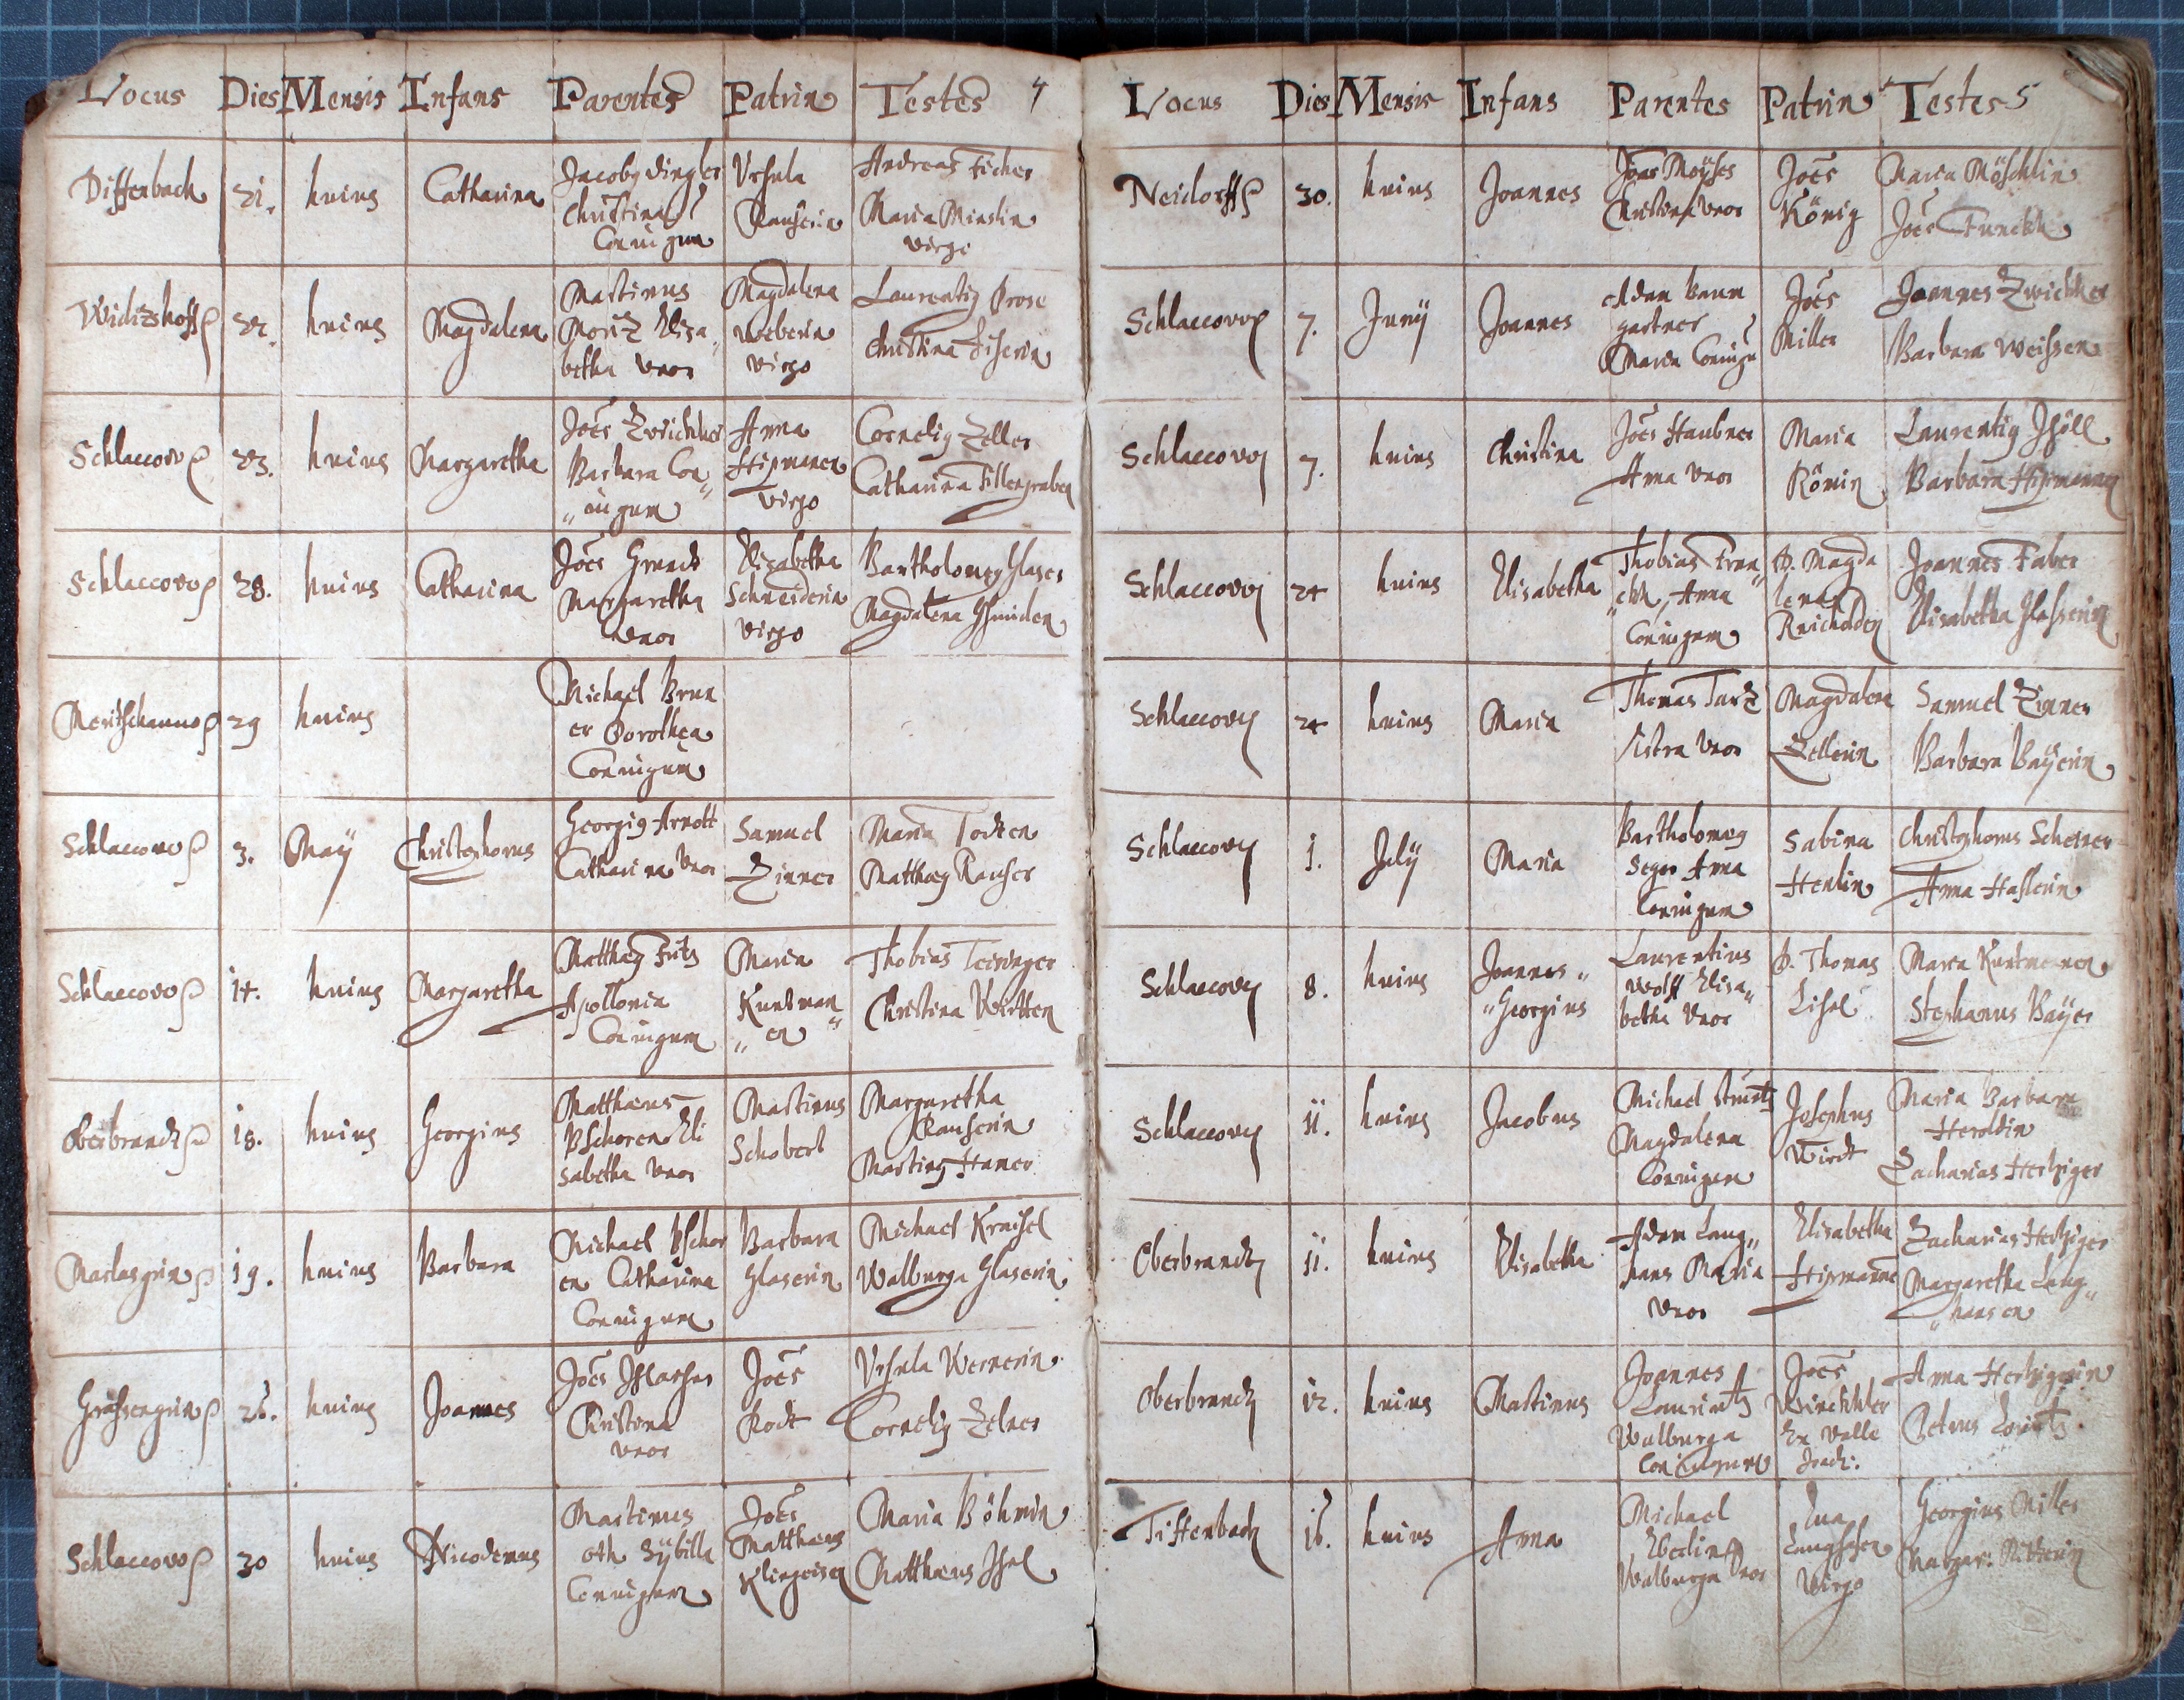 Locus Dies Mensis Infans Parentes Patrin Testes 4
Diffenbach 21. huius Catharina Jacobg Dingler Christina Coniugum Vrsula Rauscherin Andreas Ficker Maria Minslin virgo
Widitzhoff 22. huius Magdalena Martinus Moritz Elisa„ betha vxor Magdalena Weberin virgo Laurentig Prose Christina Fischerin
Schlaccow 23. huius Margaretha Joes Zwickher Barbara Con„ „iugum Anna Hipmanen virgo Cornelig Zeller Catharina Fillengraben
Schlaccow 28. huius Catharina Joes Grundt Margaretha vxor Elizabetha Schneiderin virgo Bartholomeg Glaser Magdalena Gschmiden
29 huius Michael Brun er Dorothea Coniugum
Schlaccow 3. Maÿ Christophorus Georgig Arnolt Catharina Vxor Samuel Zinner Maria Todten Mattheg Rauscher
Schlaccow 14. huius Margaretha Mattheg Fritz Apollonia Coniugum Maria Kuntman„ „en Thobias Christina Wirtten
Oberbrandt 18. huius Georgius Matthaeus Pschoren Eli sabetha Vxor Martinus Schobert Margaretha Rauscherin Marting Hamer
Marlasgrin 19. huius Barbara Michael Pschor en Catharina Coniugum Barbara Glaserin Michael Kraisel Walburga Glaserin
Grassengrin 26. huius Joannes Joes Christina vxor Joes Rodt Vrsula Wernerin Cornelig Zelner
Schlaccow 30 huius Nicodemus Martinus oth Sÿbilla Coniugum Joes Matthaeus Klingeisen Maria Böhmin Matthaeus Isel
Locus Dies Mensis Infans Parentes Patrin Testes 5
Neidorff 30. huius Joannes Joes Moÿses Christina Vxor Joes König Maria Möschlin Joes Funckh
Schlaccow 7. Junÿ Joannes Adam Baum gartner Maria Coniugu Joes Miller Joannes Zwickher Barbara Weissen
Schlaccow 7. huius Christina Joes Haubner Anna Vxor Maria Römin Laurentig Barbara Hipmannen
Schlaccow 24 huius Elisabetha Thobias Fran„ „ckh Anna Coniugum D. Magda lena Reicholden Joannes Faber Elisabetha Glasserin
Schlaccow 24 huius Maria Thomas Turtz Vxor Magdalena Zellerin Samuel Zinner Barbara Baÿerin
Schlaccow 1. Julÿ Maria Bartholomeg Seger Anna Coniugum Sabina Henlin Christophorus Scherer Anna Haslerin
Schlaccow 8. huius Joannes „ „Georgius Laurentius Wolff Elisa„ betha Vxor D. Thomas Lisel Maria Kuntmanen Stephanus Baÿer
Schlaccow 11. huius Jacobus Michael Magdalena Coniugum Josephus Wirdt Maria Barbara Heroldin Zacharias Hertziger
Oberbrandt 11. huius Elisabetha Adam Lang„ hans Maria vxor Elisabetha Hipmanne Zacharias Hertziger Margaretha Lang„ „hansen
Oberbrandt 12. huius Martinus Joannes Laurintz Walburga Coniugum Joes Winckhler Ex Valle Joach: Anna Hertzigerin Petrus Lorintz
Tiffenbach 16. huius Anna Michael Eberlin Walburga Vxor Eua Virgo Georgius Miller Margar: Ritterin